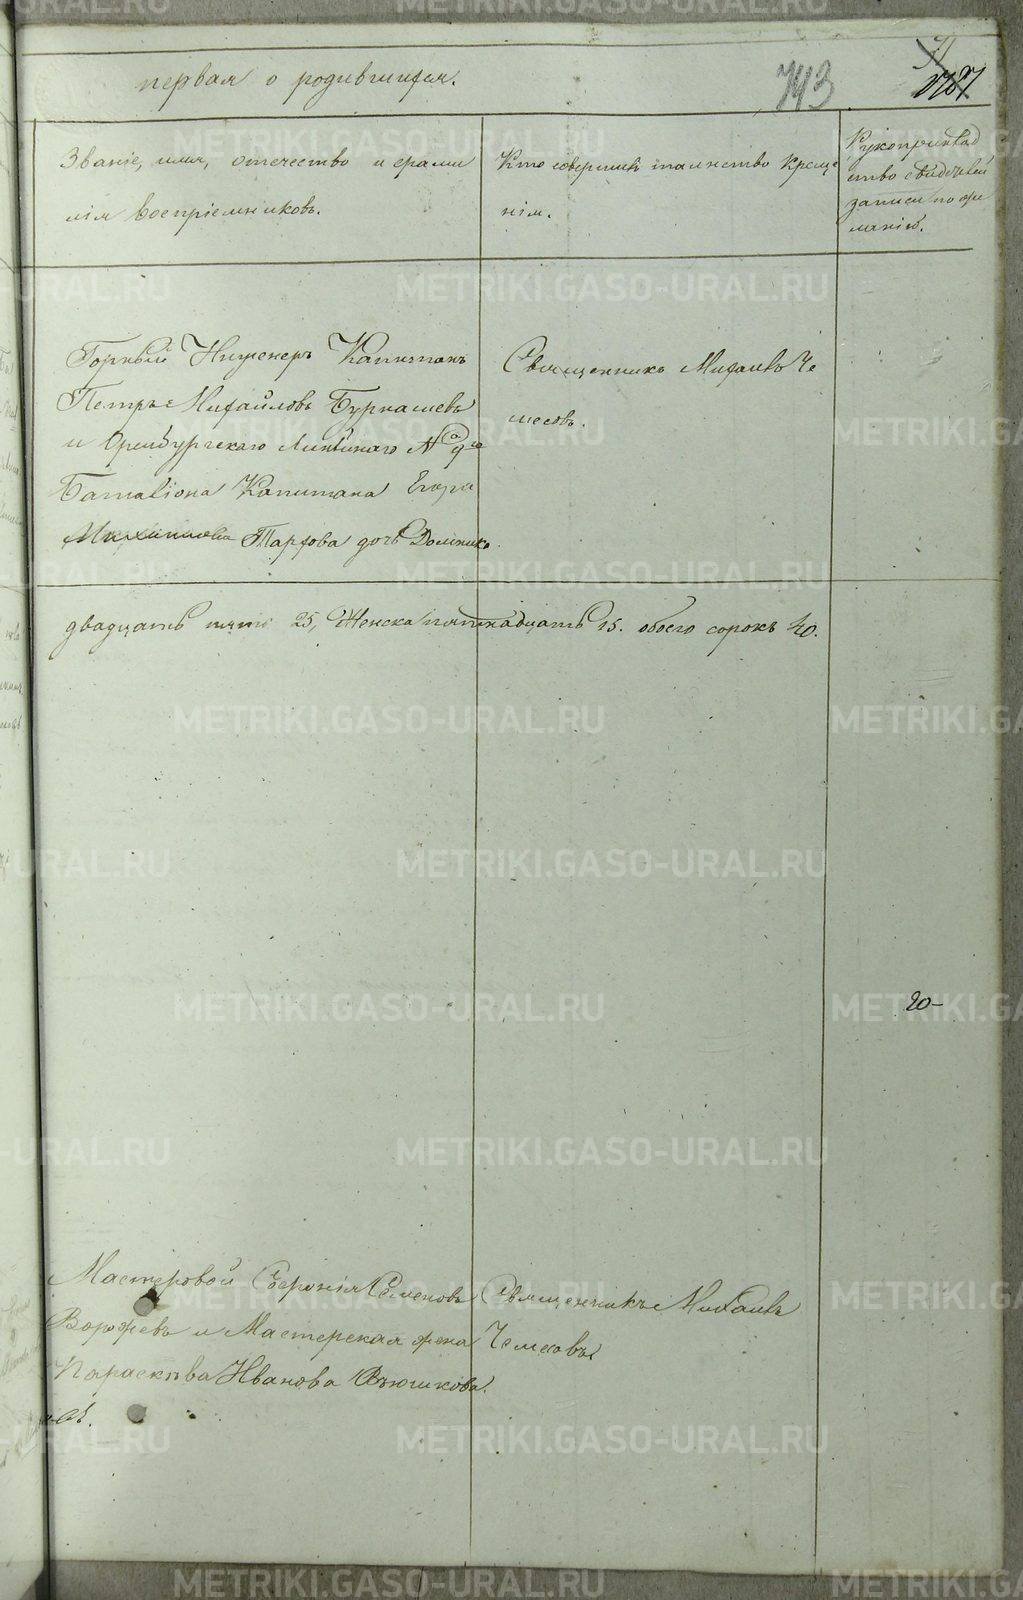 первая о родившихся.
743
Званіе, имя, отечество и фами
лія воспріемниковъ.
Кто совершилъ таинство креще
нія.
Рукоприклад
ство свидѣтелей
записи по же
ланію.
Горный Инженеръ Капитанъ
Петръ Михайловъ Бурнашевъ
и Оренбургскаго Линѣйнаго №
Баталіона Капитана Егора
Тархова дочь Домника.
Священникъ Михаилъ Че
месовъ.
двадцать пять 25, Женска пятнадцать 15. обоего сорокъ 40.
20-
Мастеровой Софронія Семеновъ
Ворожевъ и Мастерская жена
Параскева Иванова Вьюшкова.
Священникъ Михаилъ
Чемесовъ
METRIKI.GASO-URAL.RU